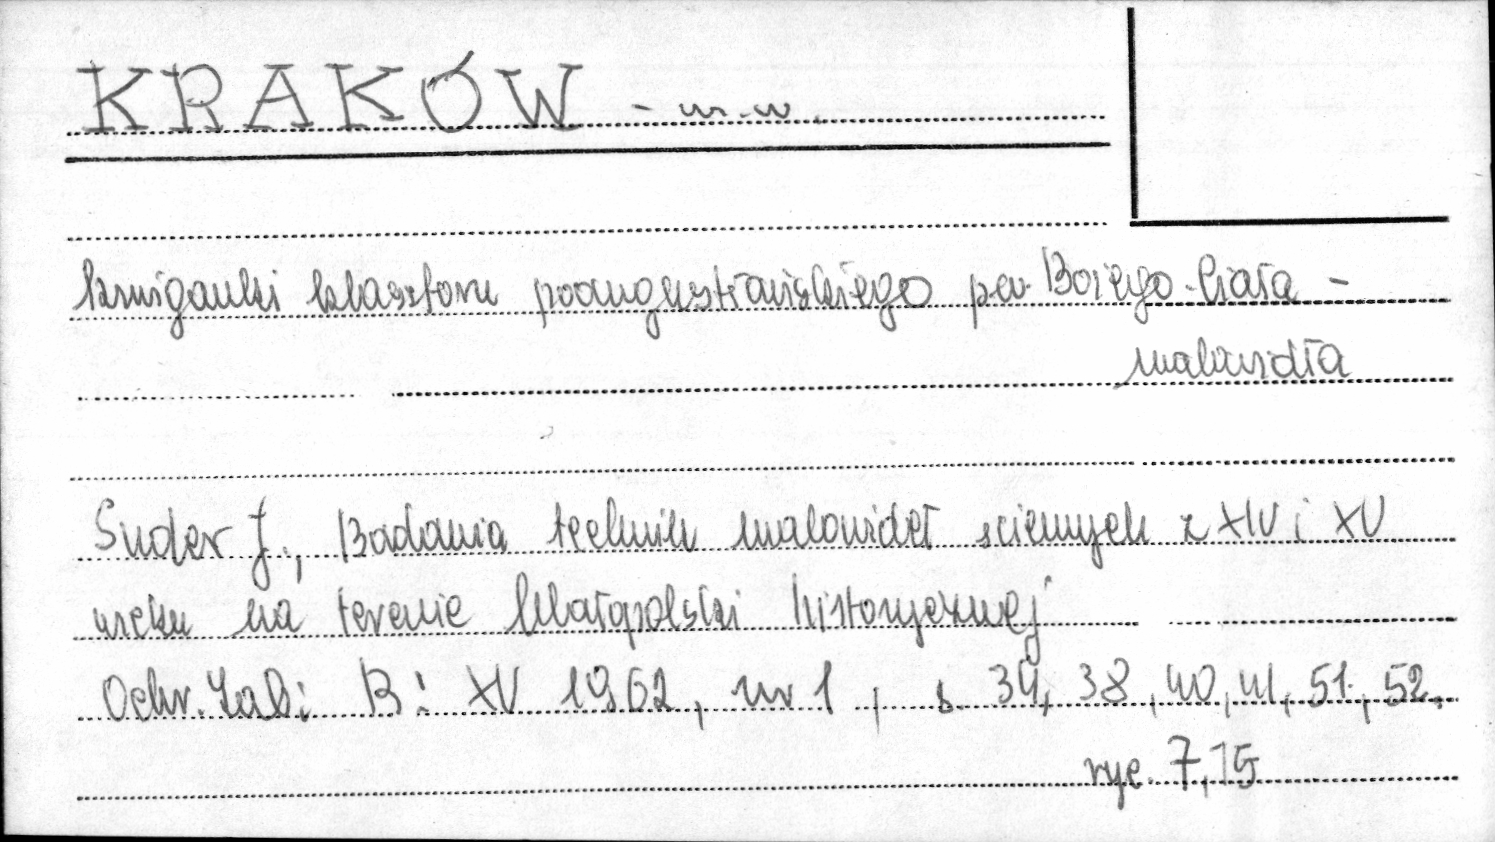 KRAKÓW - m. w.
krużganki klasztoru poaugustiańskiego p.w. Bożego Ciała -
malowidła
Suder J., Badania technik malowideł sciennych z XIV i XV
wieku na terenie Małopolski historycznej
Ochr. Zab: R: XV 1962, nr 1, s. 34, 38, 40, 41, 51, 52.
ryc. 7, 15